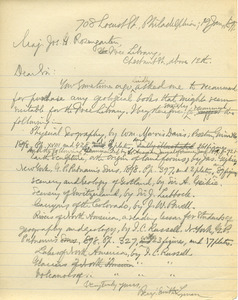 708 Locust St., Philadelphia,
Maj. Jos. G. Rosengarten,
Free Library,
Chestnut St. above 12th.
Dear Sir:
You some time ago asked me to recommend
for purchase any geological books that might seem
suitable for the Free Library. I
following:
Physical Geography, by Wm. Morris Davis; Boston, Ginn &
1898, 8°,
Earth Sculpture, or the origin of land-forms, by Jas. Geikie;
New York, G. P. Putnam's Sons, 1898, 8°, 397, and 2 plates,
Scenery and Geology of Scotland, by Sir A. Geikie,
Scenery of Switzerland, by Sir J. Lubbock,
Canyons of the Colorado, by J. W. Powell,
Rivers of North America, a reading lesson for students of
geography and geology, by I. C. Russell. N. York, G. P.
Putnam's Sons, 1898, 8°, 327, and 17 plates.
Lakes of North America, by I. C. Russell.
Glaciers of North America "
Volcanoes of " " "
Very truly yours,
Benj. Smith Lyman.